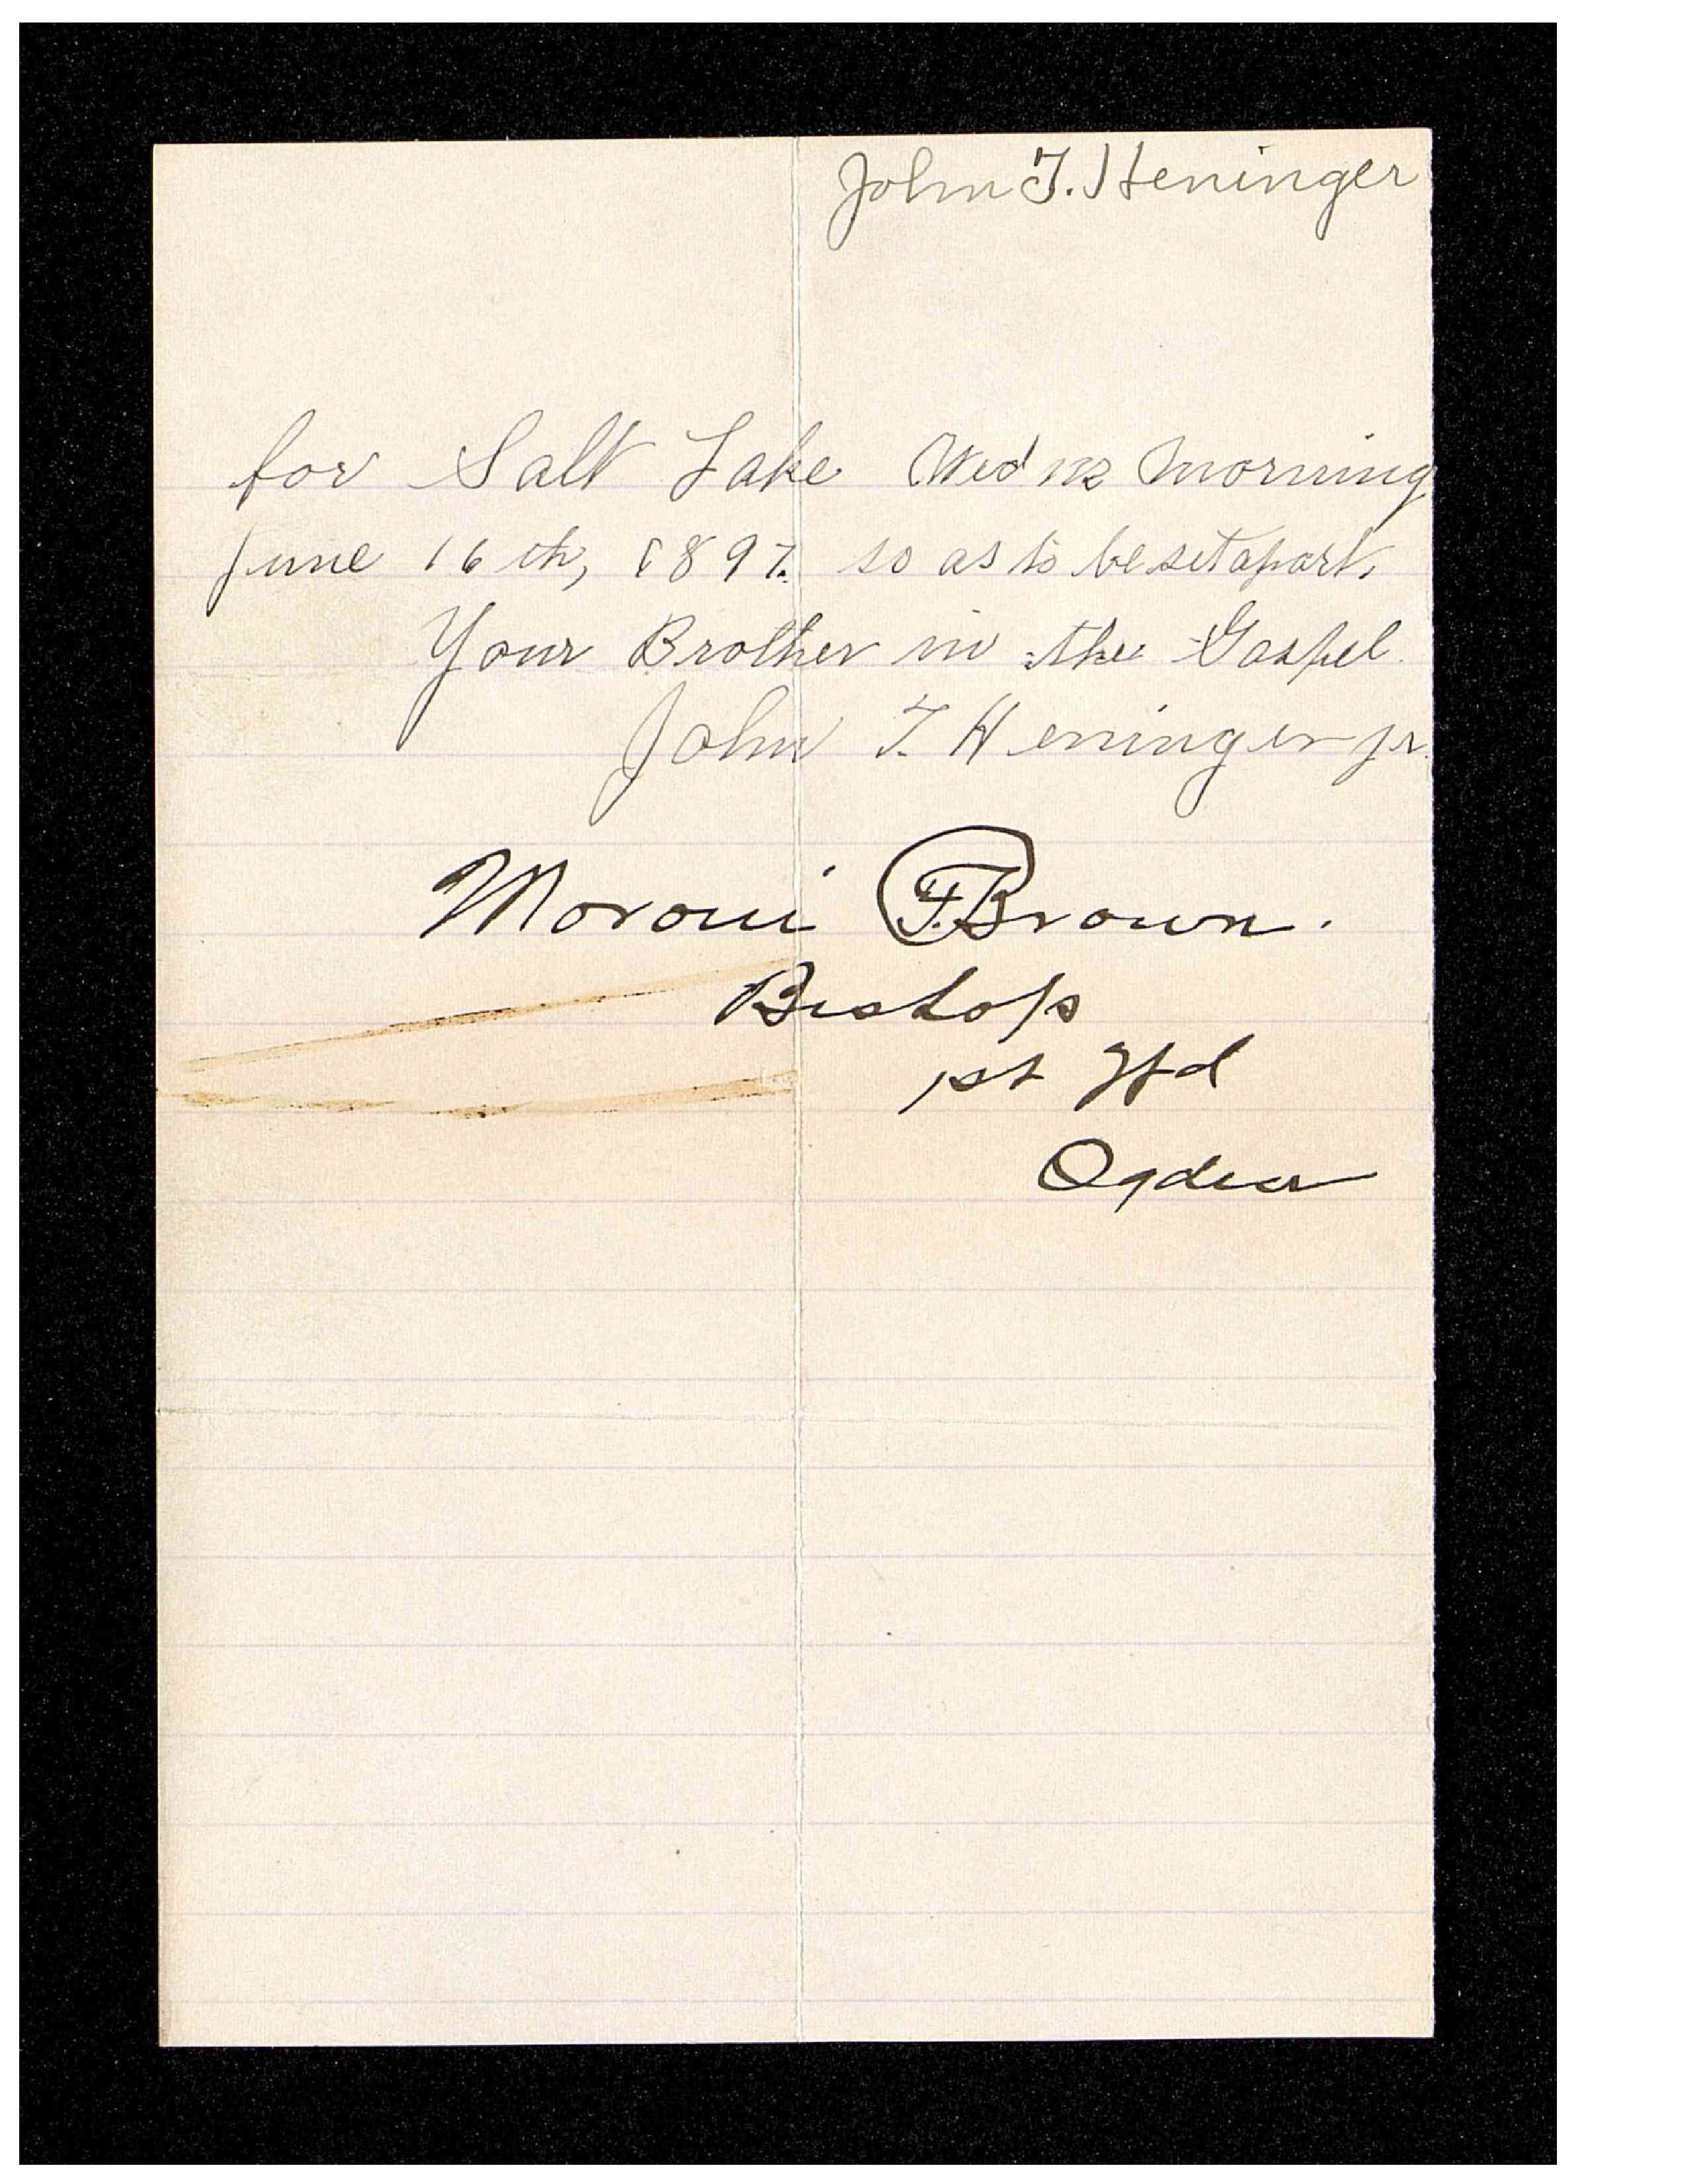 John T. Heninger
for Salt Lake Wed nz Morning
June 16th, 1897. so as to be set apart.
Your Brother in the Gospel.
John T. Heninger jr.
Moroni F. Brown.
Bishop
1st Wd
Ogden